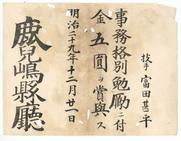 技手 富田甚平
事務格別勉励ニ付
金五圓ヲ賞與ス
明治二十九年十二月廿八日
鹿兒嶋縣廳